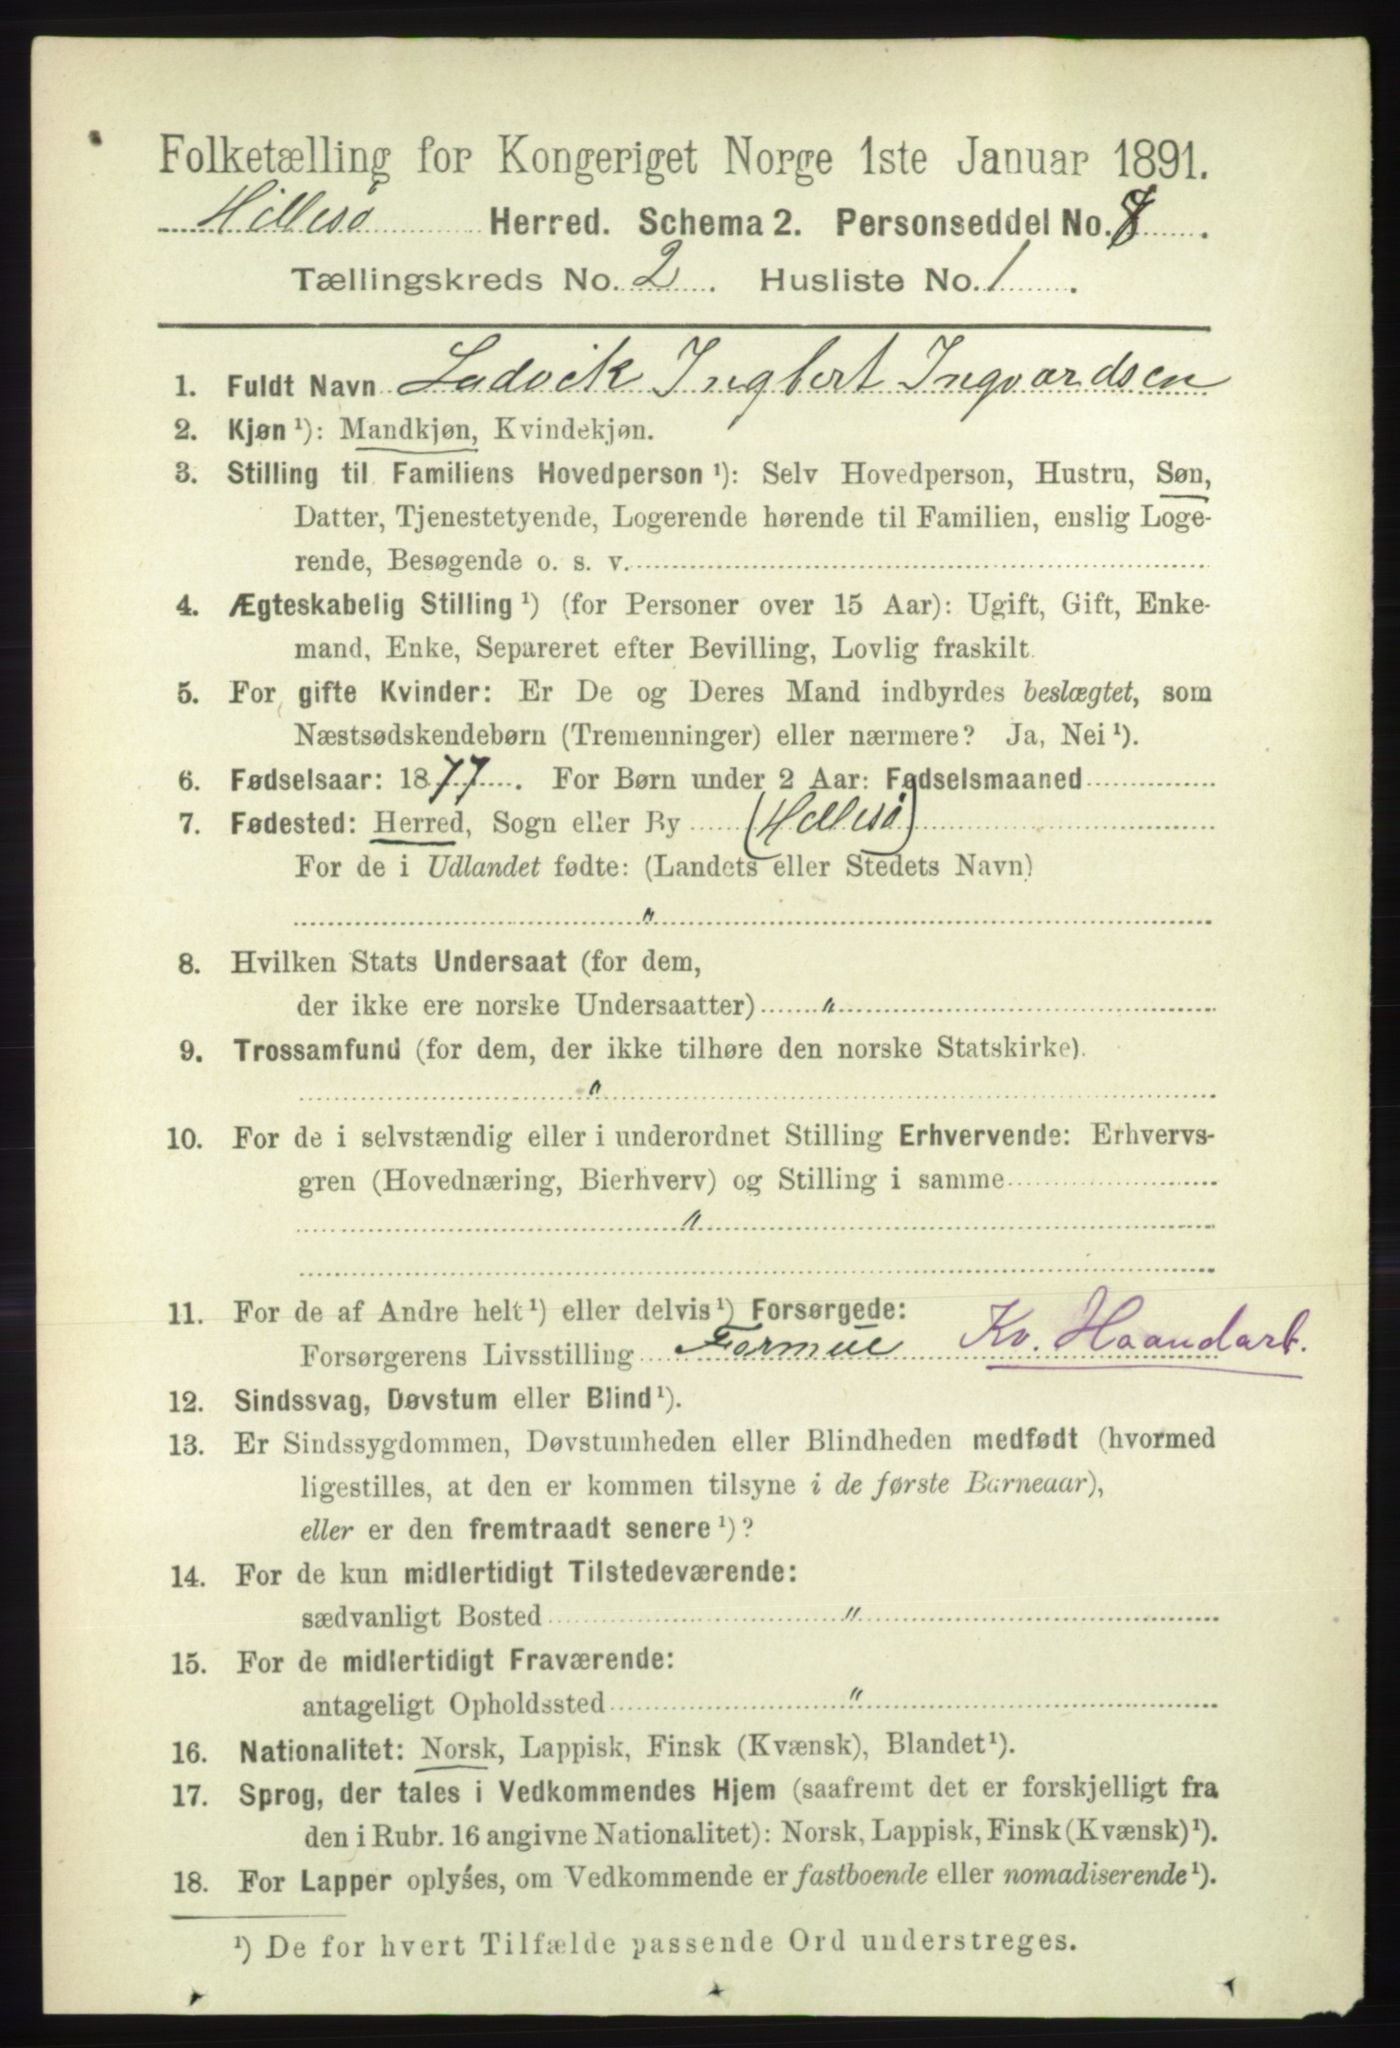 Folketælling for Kongeriget Norge 1ste Januar 1891.
Hillesø Herred. Schema 2. Personseddel No. 8.
Tællingskreds No. 2. Husliste No. 1.
1. Fuldt Navn Ladvik Ingbert Ingvardsen
2. Kjøn ¹): Mandkjøn, Kvindekjøn.
3. Stilling til Familiens Hovedperson ¹): Selv Hovedperson, Hustru, Søn,
Datter, Tjenestetyende, Logerende hørende til Familien, enslig Loge-
rende, Besøgende o. s. v.
4. Ægteskabelig Stilling ¹) (for Personer over 15 Aar): Ugift, Gift, Enke-
mand, Enke, Separeret efter Bevilling, Lovlig fraskilt.
5. For gifte Kvinder: Er De og Deres Mand indbyrdes beslægtet, som
Næstsødskendebørn (Tremenninger) eller nærmere? Ja, Nei ¹).
6. Fødselsaar: 1877. For Børn under 2 Aar: Fødselsmaaned
7. Fødested: Herred, Sogn eller By (Hillesø)
For de i Udlandet fødte: (Landets eller Stedets Navn)
"
8. Hvilken Stats Undersaat (for dem,
der ikke ere norske Undersaatter) "
9. Trossamfund (for dem, der ikke tilhøre den norske Statskirke).
"
10. For de i selvstændig eller i underordnet Stilling Erhvervende: Erhvervs-
gren (Hovednæring, Bierhverv) og Stilling i samme
"
11. For de af Andre helt ¹) eller delvis ¹) Forsørgede:
Forsørgerens Livsstilling Formue Kv. Haandarb.
12. Sindssvag, Døvstum eller Blind ¹).
13. Er Sindssygdommen, Døvstumheden eller Blindheden medfødt (hvormed
ligestilles, at den er kommen tilsyne i de første Barneaar),
eller er den fremtraadt senere ¹)?
14. For de kun midlertidigt Tilstedeværende:
sædvanligt Bosted "
15. For de midlertidigt Fraværende:
antageligt Opholdssted "
16. Nationalitet: Norsk, Lappisk, Finsk (Kvænsk), Blandet ¹).
17. Sprog, der tales i Vedkommendes Hjem (saafremt det er forskjelligt fra
den i Rubr. 16 angivne Nationalitet): Norsk, Lappisk, Finsk (Kvænsk) ¹).
18. For Lapper oplyses, om Vedkommende er fastboende eller nomadiserende ¹).
¹) De for hvert Tilfælde passende Ord understreges.